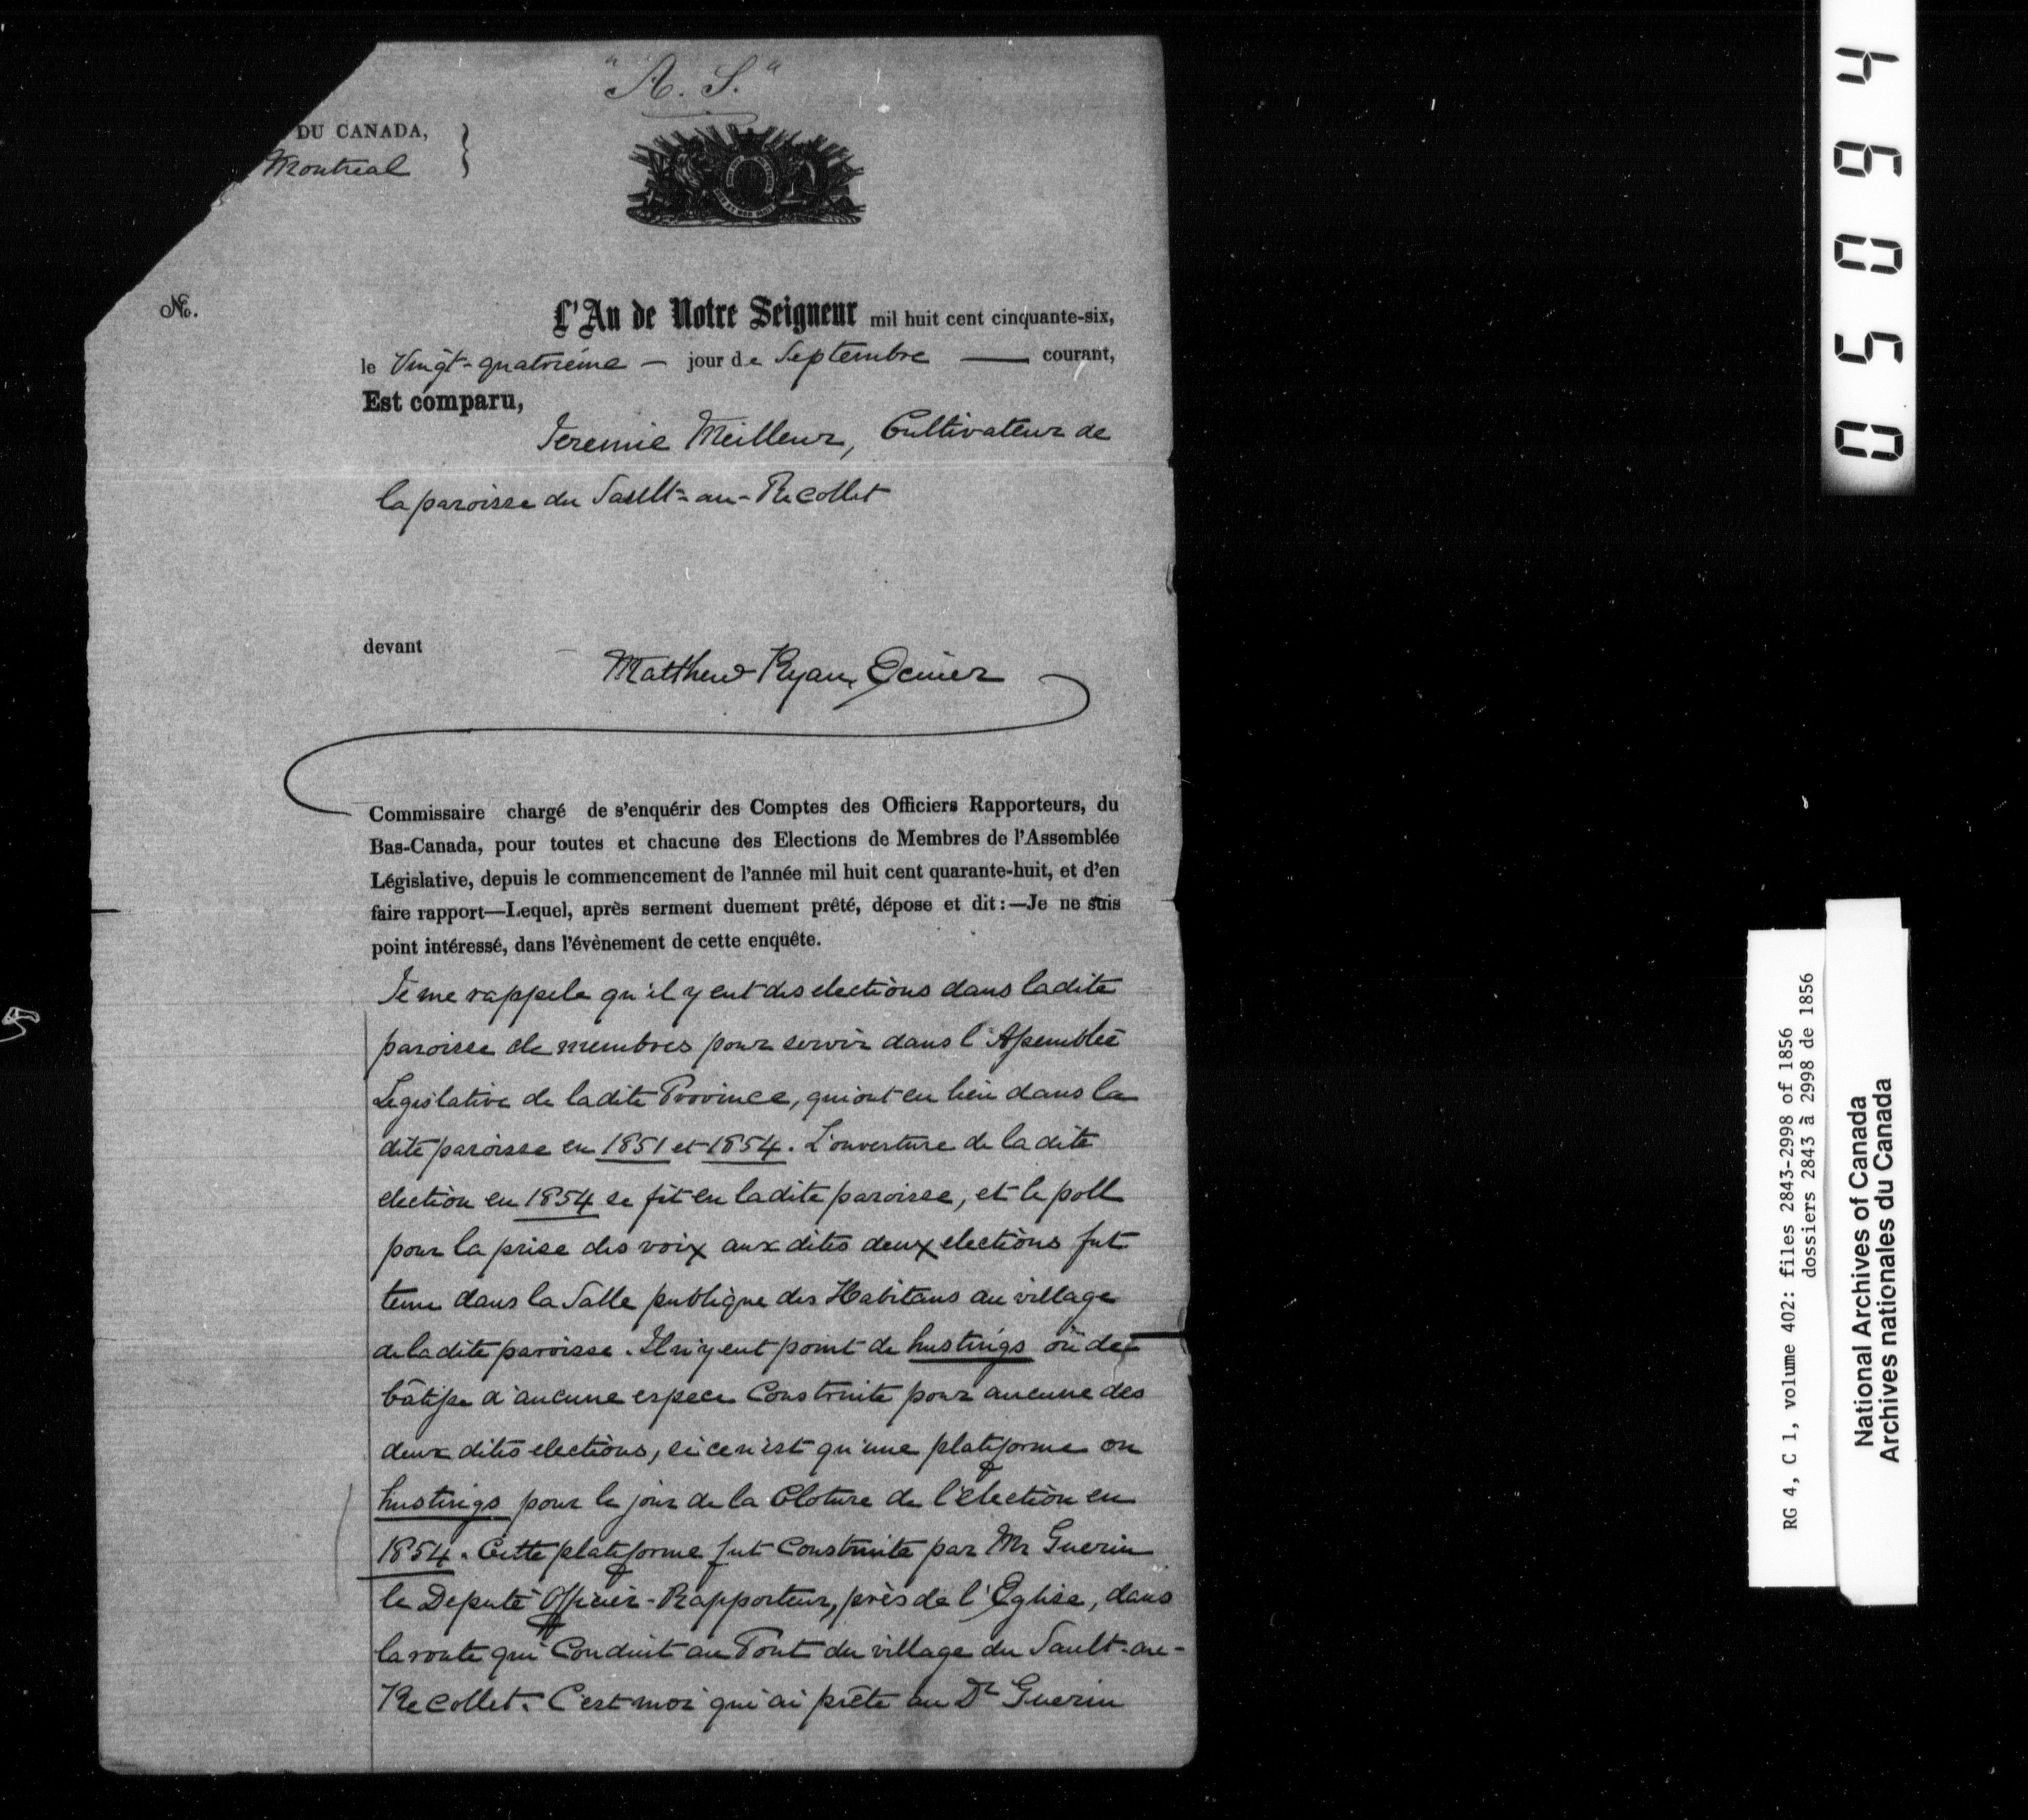 "A. S."
DU CANADA,
Montreal
No.
L'An de Notre Seigneur mil huit cent cinquante-six,
le Vingt-quatrième — jour de Septembre — courant,
Est comparu,
Jeremie Meilleur, Cultivateur de
la paroisse du Sault-au-Recollet
devant
Matthew Ryan, Ecuier
Commissaire chargé de s'enquérir des Comptes des Officiers Rapporteurs, du
Bas-Canada, pour toutes et chacune des Elections de Membres de l'Assemblée
Législative, depuis le commencement de l'année mil huit cent quarante-huit, et d'en
faire rapport—Lequel, après serment duement prêté, dépose et dit:—Je ne suis
point intéressé, dans l'évènement de cette enquête.
Je me rappele qu'il y eut des elections dans ladite
paroisse de membres pour servir dans l'Assemblée
Legislative de ladite Province, qui ont eu lieu dans la
dite paroisse en 1851 et 1854. L'ouverture de la dite
election en 1854 se fit en ladite paroisse, et le poll
pour la prise des voix aux dites deux elections fut
tenu dans la Salle publique des Habitans au village
de ladite paroisse. Il n'y eut point de hustings ou de
bâtisse d'aucune espece Construite pour aucune des
deux dites elections, si ce n'est qu'une plateforme ou
hustings pour le jour de la Cloture de l'élection en
1854. Cette plateforme fut Construite par Mr Guerin
le Deputé Officier-Rapporteur, près de l'Eglise, dans
la route qui Conduit au Pont du village du Sault-au-
Recollet. C'est moi qui ai prêté au Dr Guerin
05094
RG 4, C 1, volume 402: files 2843-2998 of 1856
dossiers 2843 à 2998 de 1856
National Archives of Canada
Archives nationales du Canada